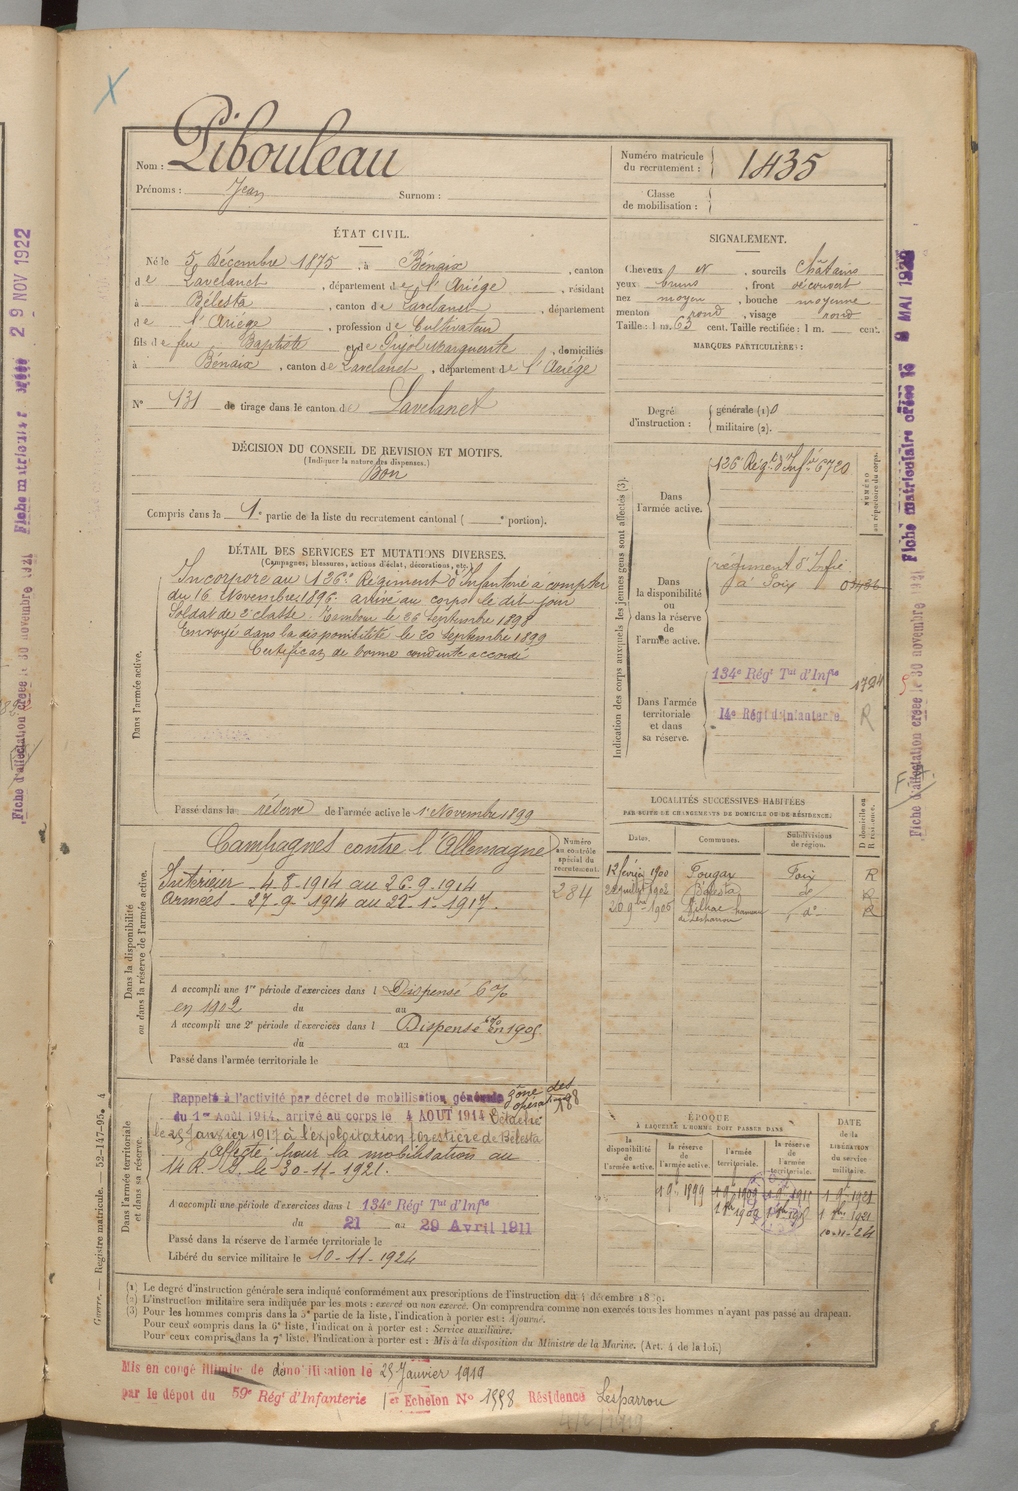 Nom : Pibouleau
Prénoms : Jean Surnom :
Numéro matricule du recrutement : 1435
Classe de mobilisation :
ÉTAT CIVIL.
Né le 5 Décembre 1875, à Bénaix, canton
de Lavelanet, département de l'Ariége, résidant
à Bélesta, canton de Lavelanet, département
de l'Ariége, profession de Cultivateur
fils de feu Baptiste et de Pujol Marguerite, domiciliés
à Bénaix, canton de Lavelanet, département de l'Ariége
N° 131 de tirage dans le canton de Lavelanet
SIGNALEMENT.
Cheveux N, sourcils Châtains
yeux bruns, front découvert
nez moyen, bouche moyenne
menton rond, visage rond
Taille : 1 m. 63 cent. Taille rectifiée : 1 m. cent.
MARQUES PARTICULIÈRES :
Degré d'instruction : générale (1) 0
militaire (2).
DÉCISION DU CONSEIL DE REVISION ET MOTIFS.
(Indiquer la nature des dispenses.)
Bon
Compris dans la 1e partie de la liste du recrutement cantonal ( e portion).
DÉTAIL DES SERVICES ET MUTATIONS DIVERSES.
(Campagnes, blessures, actions d'éclat, décorations, etc.)
Dans l'armée active.
Incorporé au 126e Régiment d'Infanterie à compter
du 16 Novembre 1896. arrivé au corps le dit jour
Soldat de 2e classe. Tambour le 26 septembre 1898
Envoyé dans la disponibilité le 20 septembre 1899
Certificat de bonne conduite accordé
Passé dans la réserve de l'armée active le 1er Novembre 1899
Indication des corps auxquels les jeunes gens sont affectés (3).
NUMÉRO au répertoire du corps.
Dans l'armée active.
126 Régt d'Infie 6720
Dans la disponibilité ou dans la réserve de l'armée active.
régiment d'Infie
à Foix
Dans l'armée territoriale et dans sa réserve.
134e Régt Tal d'Infie 1724
14e Régt d'infanterie. R
Dans la disponibilité ou dans la réserve de l'armée active.
Campagnes contre l'Allemagne
Intérieur - 4-8-1914 au 26-9-1914
Armées - 27-9-1914 au 22-1-1917.
Numéro au contrôle spécial du recrutement.
284
A accompli une 1re période d'exercices dans l Dispensé 6 %
en 1902 du au
A accompli une 2e période d'exercices dans l Dispensé 6% en 1905
du au
Passé dans l'armée territoriale le
LOCALITÉS SUCCESSIVES HABITÉES
PAR SUITE DE CHANGEMENTS DE DOMICILE OU DE RÉSIDENCE.
Dates. Communes. Subdivisions de région. D domicile ou R résidence.
12 février 1900 Fougax Foix R
Bélesta do R
20 9bre 1906 do R
Dans l'armée territoriale et dans sa réserve.
Rappelé à l'activité par décret de mobilisation générale zône des
du 1er Août 1914, arrivé au corps le 4 AOUT 1914 Détaché
le 23 Janvier 1917 à l'exploitation forestière de Bélesta
affecté pour la mobilisation au
14 R. I. le 30-11-1921.
A accompli une période d'exercices dans l 134e Régt Tal d'Infie
du 21 au 29 Avril 1911
Passé dans la réserve de l'armée territoriale le
Libéré du service militaire le 10-11-1924
ÉPOQUE
A LAQUELLE L'HOMME DOIT PASSER DANS
la disponibilité de l'armée active. la réserve de l'armée active. l'armée territoriale. la réserve de l'armée territoriale.
DATE de la LIBÉRATION du service militaire.
1 9e 1899 1 9e 1909 1 9e 1915 1 9e 1921
1 9bre 1909 1 9bre 1915 1 9bre 1921
10-11-24
(1) Le degré d'instruction générale sera indiqué conformément aux prescriptions de l'instruction du 4 décembre 1889.
(2) L'instruction militaire sera indiquée par les mots : exercé ou non exercé. On comprendra comme non exercés tous les hommes n'ayant pas passé au drapeau.
(3) Pour les hommes compris dans la 5e partie de la liste, l'indication à porter est : Ajourné.
Pour ceux compris dans la 6e liste, l'indication à porter est : Service auxiliaire.
Pour ceux compris dans la 7e liste, l'indication à porter est : Mis à la disposition du Ministre de la Marine. (Art. 4 de la loi.)
Mis en congé illimité de démobilisation le 25 Janvier 1919
par le dépot du 59e Régt d'Infanterie 1er Echelon N° 1558 Résidence Lesparrou
4/2/1919
Guerre. — Registre matricule. — 52-147-95. 4
Fiche d'affectation créée le 30 novembre 1921 Fiche matriculaire
29 NOV 1922
Fiche d'affectation créée le 30 novembre 1921 Fiche matriculaire créée le